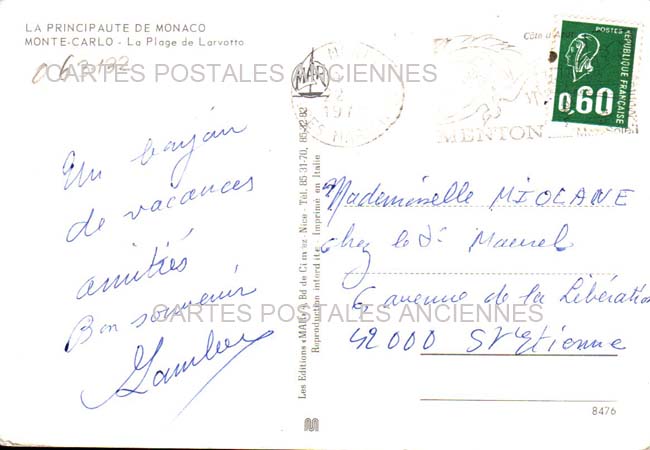 LA PRINCIPAUTE DE MONACO
MONTE-CARLO - La Plage de Larvotto
CARTES POSTALES ANCIENNES
MAR
MENTON
Côte d'Azur
POSTES
REPUBLIQUE FRANÇAISE
0,60
Un bonjour
de vacances
amitiés
Bon souvenir
Les Editions «MAR», Bd de Cimiez - Nice - Tél. 85-31-70, 85-22-82
Reproduction interdite Imprimé en Italie
Mademoiselle MIOLANE
chez le Dr Maurel
6 avenue de la Libération
42000 St Etienne
CARTES POSTALES ANCIENNES
8476